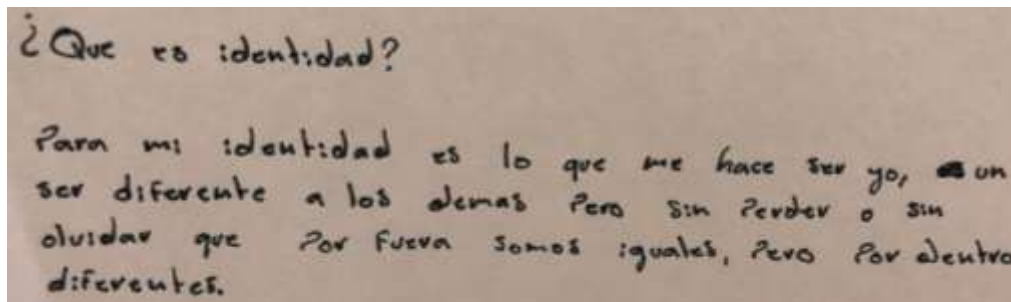 ¿Que es identidad?
Para mi identidad es lo que me hace ser yo, un
ser diferente a los demas Pero sin Perder o sin
olvidar que Por fuera somos iguales, Pero Por dentro
diferentes.